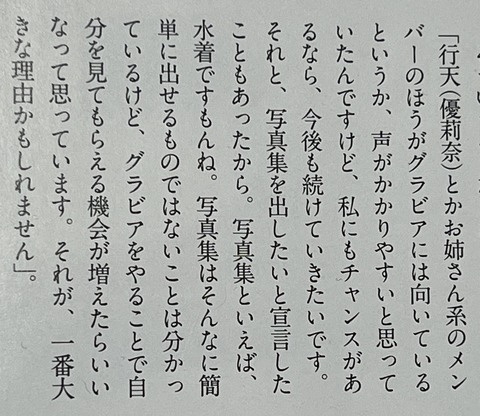 「行天(優莉奈)とかお姉さん系のメン
バーのほうがグラビアには向いている
というか、声がかかりやすいと思って
いたんですけど、私にもチャンスがあ
るなら、今後も続けていきたいです。
それと、写真集を出したいと宣言した
こともあったから。写真集といえば、
水着ですもんね。写真集はそんなに簡
単に出せるものではないことは分かっ
ているけど、グラビアをやることで自
分を見てもらえる機会が増えたらいい
なって思っています。それが、一番大
きな理由かもしれません」。